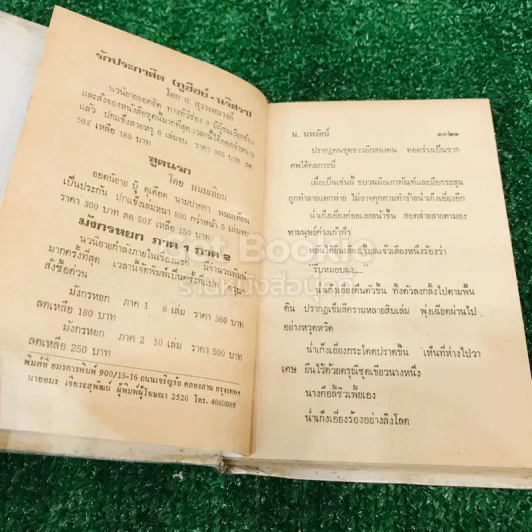 รักประกาศิต (ภูชิชย์-นริศรา)
โดย ก. สุรางคนางค์
นวนิยายยอดฮิต ทางทีวีช่อง 9 มีผู้ชมเรียกร้อง
และสั่งจองหนังสือชุดนี้มากที่สุด เวลานี้ได้ออกจำหน่าย
แล้ว ปกแข็งสวยหรู 6 เล่มจบ ราคา 360 บาท ลด
50% เหลือ 180 บาท
ทูตนรก
โดย พนมเทียน
ยอดนิยาย บู๊ ดุเดือด นามปากกา พนมเทียน
เป็นประกัน ปกแข็งเล่มหนา 800 กว่าหน้า 5 เล่มจบ
ราคา 300 บาท ลด 50% เหลือ 150 บาท
มังกรหยก ภาค 1 ภาค 2
นวนิยายกำลังภายในเรื่องแรก มีจำนวนพิมพ์
มากครั้งที่สุด เวลานี้จัดพิมพ์เป็นครั้งที่แปด
สั่งซื้อด่วน
มังกรหยก ภาค 1 8 เล่ม ราคา 360 บาท
ลดเหลือ 180 บาท
มังกรหยก ภาค 2 10 เล่ม ราคา 500 บาท
ลดเหลือ 250 บาท
พิมพ์ที่ อมรการพิมพ์ 900/15-16 ถนนเจริญรัถ คลองสาน กรุงเทพฯ
นายอมร เจียระสุพัฒน์ ผู้พิมพ์ผู้โฆษณา 2520 โทร. 4660089
น. นพรัตน์ ๑๓๒๑
ปรากฏคนชุดขาวอีกสองคน ทอดร่างเป็นซาก
ศพใต้คมกระบี่
เมื่อเป็นเช่นนี้ ขบวนมือเกาทัณฑ์และมือกระสุน
ถูกทำลายแตกพ่าย ไม่อาจคุกคามทำร้ายน่ำเก็งเอี่ยงอีก
น่ำเก็งเอี่ยงค่อยเงยหน้าขึ้น สอดส่ายสายตามอง
หามนุษย์ค่างเก้าผั่ว
พลันได้ยินเสียงเรียบแจ้วเสียงหนึ่งร้องว่า
"รีบหมอบลง...."
น่ำเก็งเอี่ยงตื่นตัวขึ้น ทิ้งตัวลงกลิ้งไปตามพื้น
ดิน ปรากฏเข็มสีครามหลายสิบเล่ม พุ่งเฉียดผ่านไป
อย่างหวุดหวิด
น่ำเก็งเอี่ยงกระโดดปราดขึ้น เห็นที่ห่างไปวา
เศษ ยืนไว้ด้วยดรุณีชุดเขียวนางหนึ่ง
นางคือสี่ชิวเฟยเอง
น่ำเก็งเอี่ยงร้องอย่างลิงโลด
ร้านหนังสือ